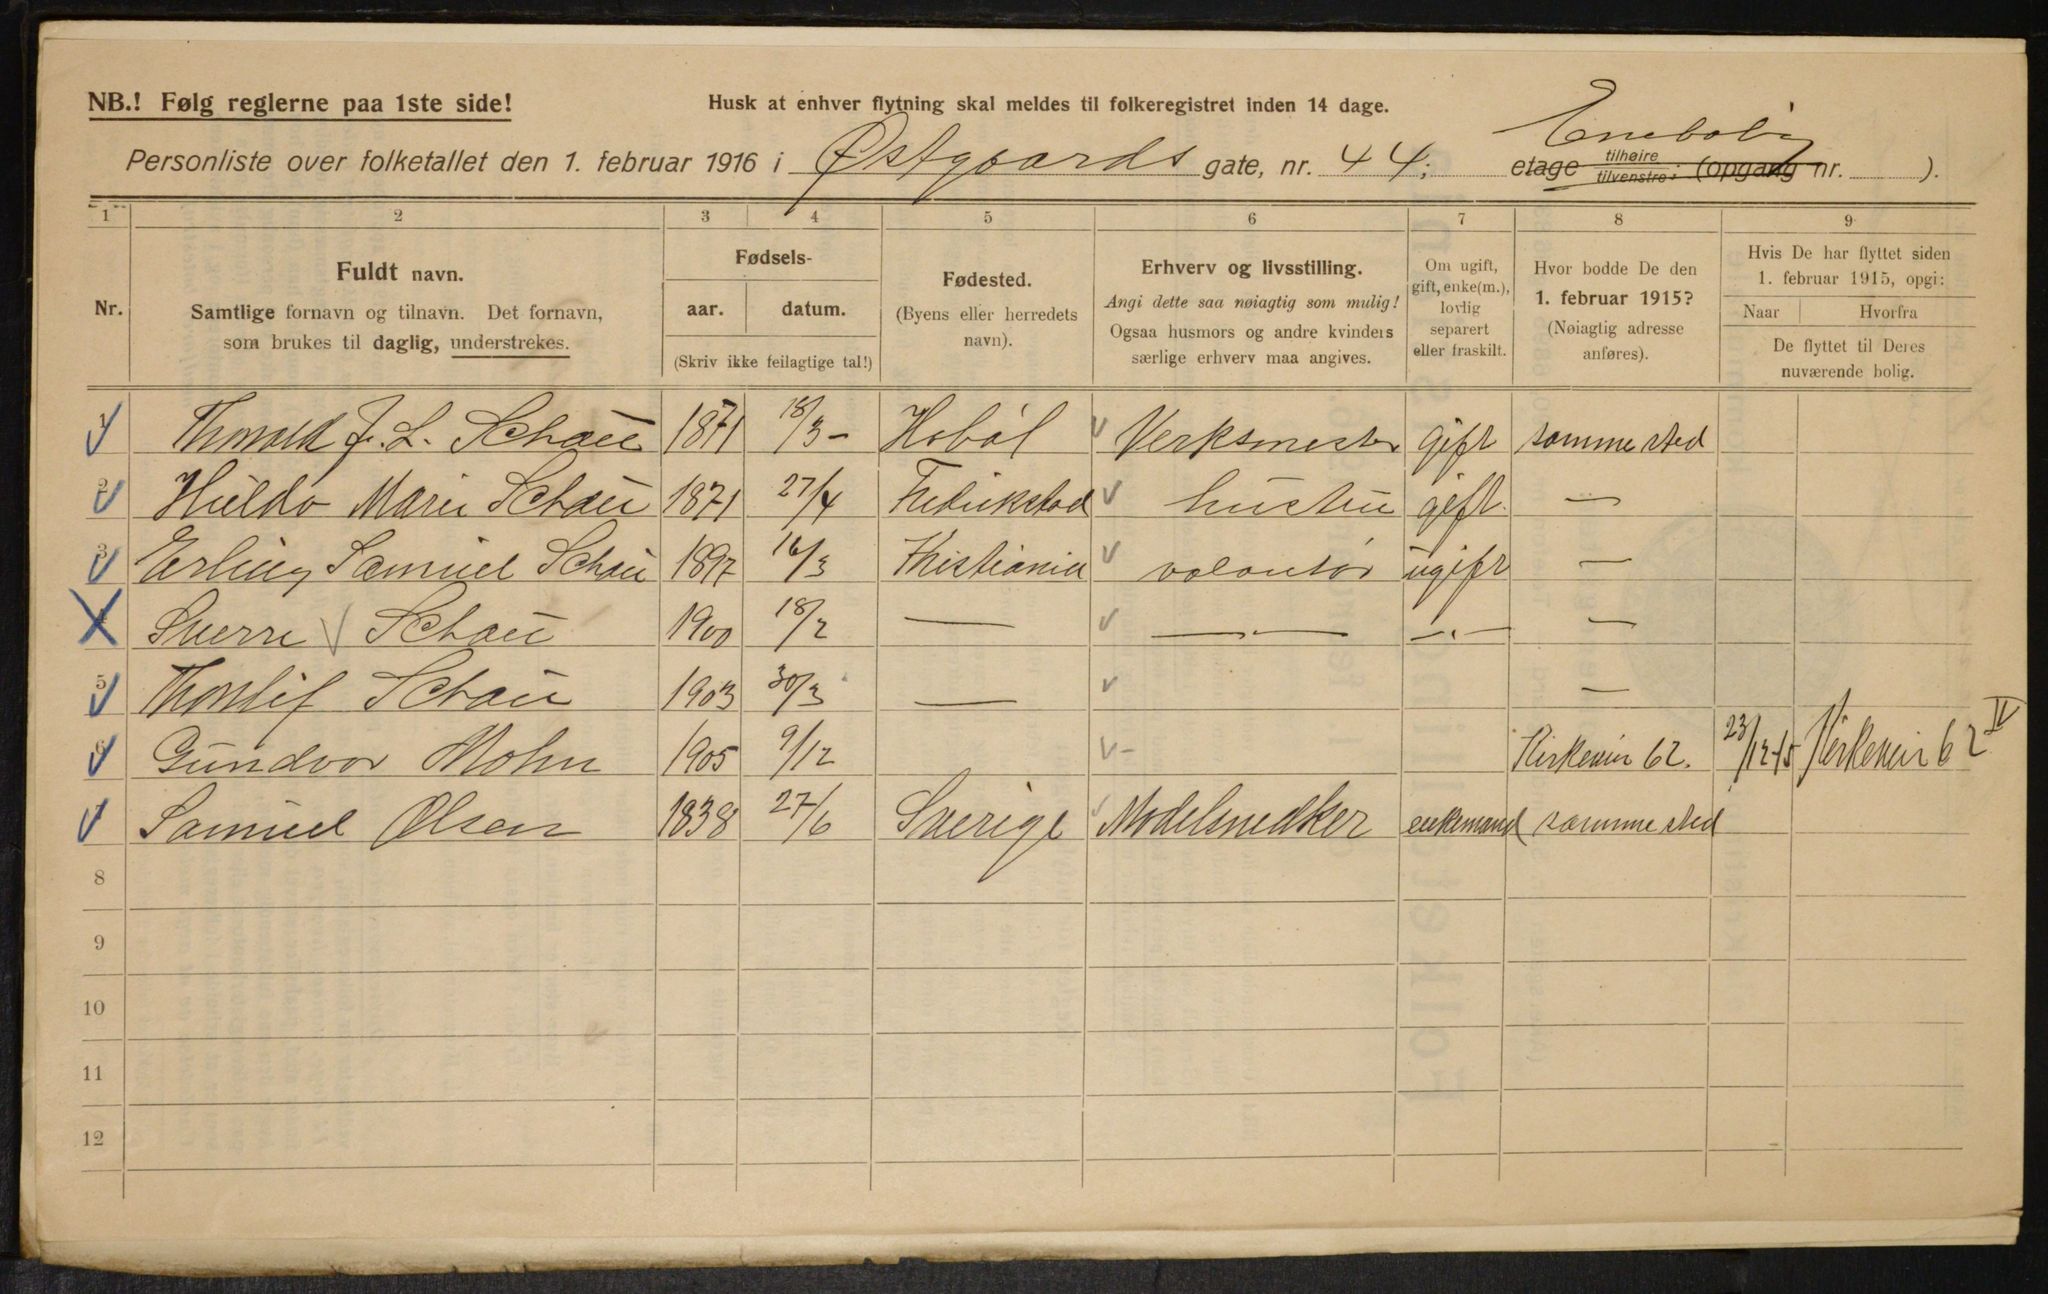 NB.! Følg reglerne paa 1ste side!
Husk at enhver flytning skal meldes til folkeregistret inden 14 dage.
Enebolig
Personliste over folketallet den 1. februar 1916 i Østgaards gate, nr. 44; etage tilhøire tilvenstre; (opgang nr. ).
1 2 3 4 5 6 7 8 9
Nr.
Fuldt navn.
Samtlige fornavn og tilnavn. Det fornavn,
som brukes til daglig, understrekes.
Fødsels-
aar. datum.
(Skriv ikke feilagtige tal!)
Fødested.
(Byens eller herredets
navn).
Erhverv og livsstilling.
Angi dette saa nøiagtig som mulig!
Ogsaa husmors og andre kvinders
særlige erhverv maa angives.
Om ugift,
gift, enke(m.),
lovlig
separert
eller fraskilt.
Hvor bodde De den
1. februar 1915?
(Nøiagtig adresse
anføres).
Hvis De har flyttet siden
1. februar 1915, opgi:
Naar Hvorfra
De flyttet til Deres
nuværende bolig.
1 Thorvald J. L. Schau 1871 18/3 - Hobøl Verksmester gift samme sted
2 Hilda Marie Schau 1871 27/4 Fredrikstad hustru gift. —
3 Erling Samuel Schau 1897 16/3 Kristiania volontør ugift —
4 Sverre Schau 1900 18/2 — — — —
5 Thorleif Schau 1903 30/3 — —
6 Gundvor Mohn 1905 9/12 - Kirkevei 62. 23/12-15 Kirkevei 62 IV
Samuel Olsen 1838 27/6 Sverige Modelsnedker enkemand samme sted
8
9
10
11
12